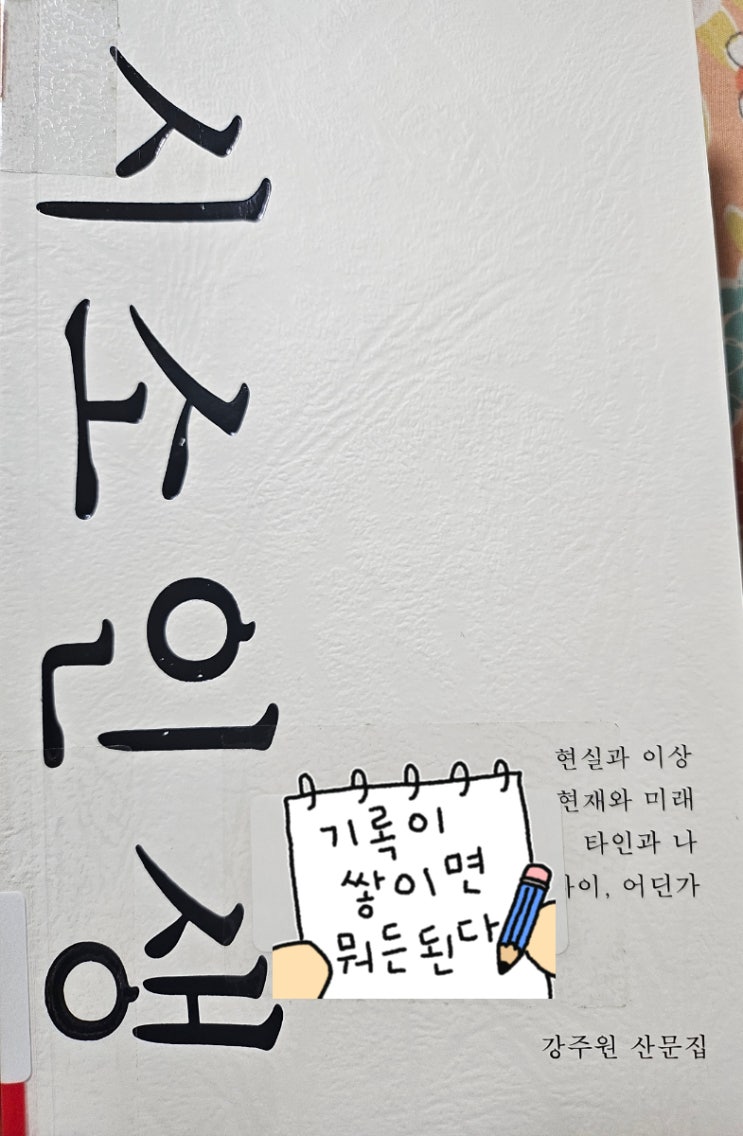 시소인생
현실과 이상
현재와 미래
타인과 나
어딘가
기록이
쌓이면
뭐든된다
강주원 산문집